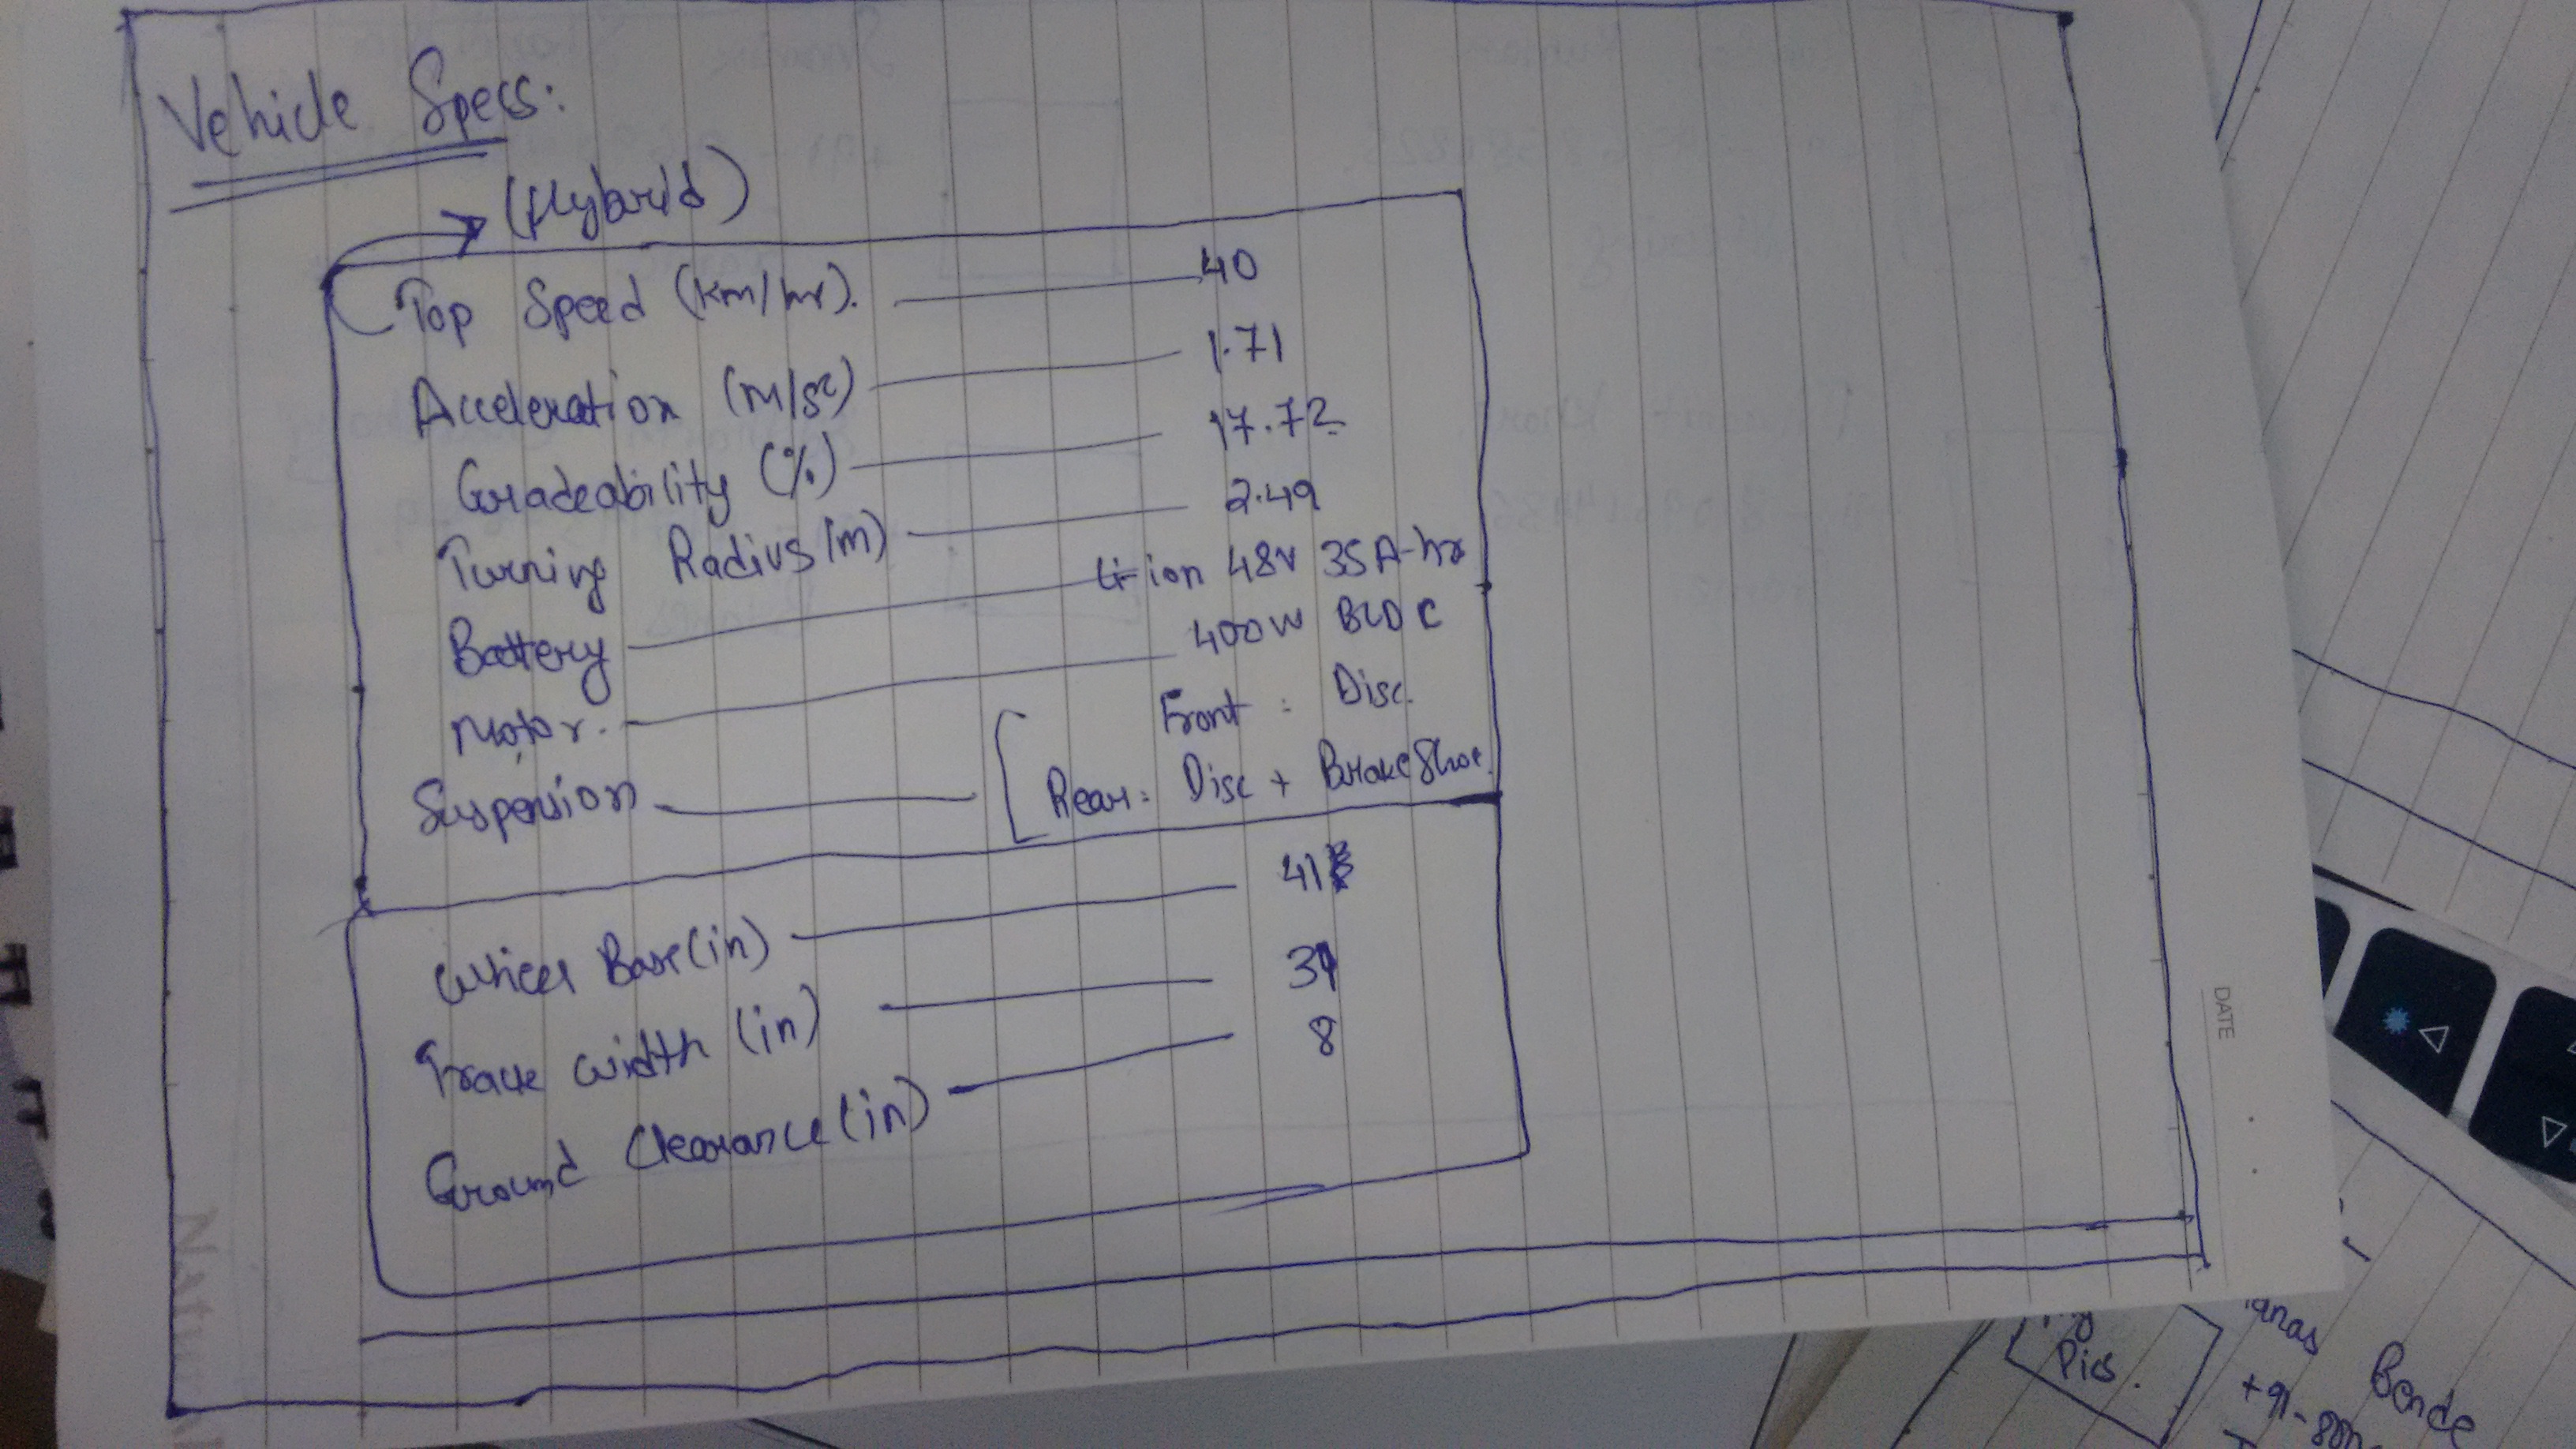 Vehicle Specs:
(Hybrid)
Top Speed (km/hr). 40
Acceleration (m/s²) 1.71
Gradeability (%) 17.72
Turning Radius (m) 2.49
Battery Li-ion 48V 35A-hr
Motor. 400W BLDC
Suspension Front : Disc.
Rear: Disc + Brake Shoe.
Wheel Base (in) 41
Track width (in)
Ground Clearance (in) 8
DATE
Pics.
Bende